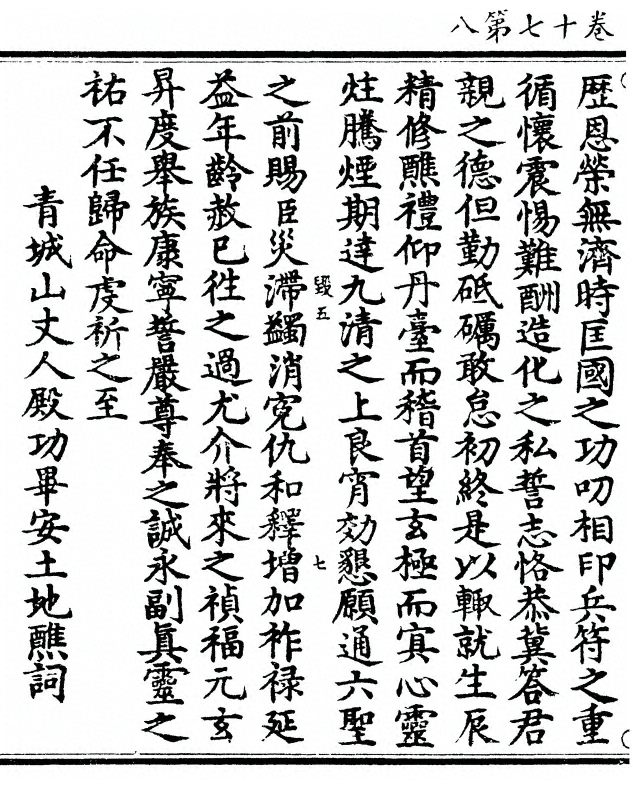 卷十七第八
歷恩榮無濟時匡國之功叨相印兵符之重
循懷震惕難酬造化之私誓志恪恭冀答君
親之德但勤砥礪敢怠初終是以輙就生辰
精修醮禮仰丹臺而稽首望玄極而寘心靈
炷騰煙期達九清之上良宵効懇願通六聖
毀五
七
之前賜臣災滯蠲消寃仇和釋增加祚禄延
益年齡赦已徃之過尤介將來之禎福元玄
昇度舉族康寧誓嚴尊奉之誠永副真靈之
祐不任歸命虔祈之至
青城山丈人殿功畢安土地醮詞